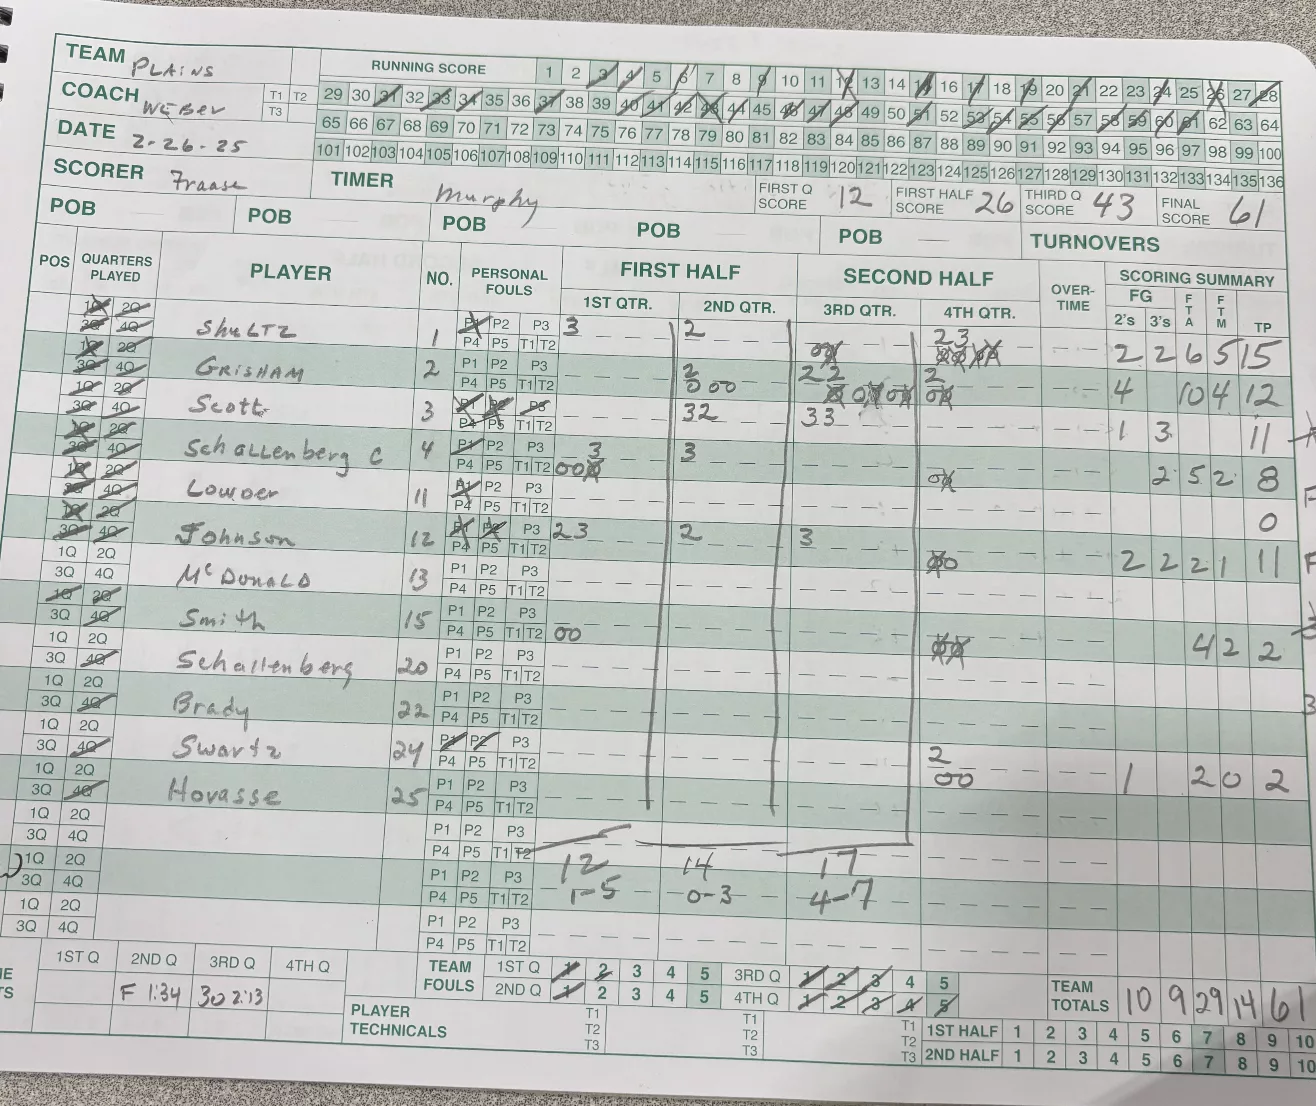 TEAM PLAINS
COACH WEBER T1 T2 T3
DATE 2-26-25
SCORER Fraase
TIMER Murphy
RUNNING SCORE 1 2 3 4 5 6 7 8 9 10 11 12 13 14 15 16 17 18 19 20 21 22 23 24 25 26 27 28
29 30 31 32 33 34 35 36 37 38 39 40 41 42 43 44 45 46 47 48 49 50 51 52 53 54 55 56 57 58 59 60 61 62 63 64
65 66 67 68 69 70 71 72 73 74 75 76 77 78 79 80 81 82 83 84 85 86 87 88 89 90 91 92 93 94 95 96 97 98 99 100
101 102 103 104 105 106 107 108 109 110 111 112 113 114 115 116 117 118 119 120 121 122 123 124 125 126 127 128 129 130 131 132 133 134 135 136
FIRST Q SCORE 12 FIRST HALF SCORE 26 THIRD Q SCORE 43 FINAL SCORE 61
POB POB POB POB POB TURNOVERS
POS QUARTERS PLAYED PLAYER NO. PERSONAL FOULS FIRST HALF SECOND HALF OVER-TIME SCORING SUMMARY
1ST QTR. 2ND QTR. 3RD QTR. 4TH QTR. FG 2's 3's FTA FTM TP
1Q 2Q 3Q 4Q Shultz 1 P1 P2 P3 P4 P5 T1 T2 3 2 23 2 2 6 5 15
1Q 2Q 3Q 4Q GRISHAM 2 P1 P2 P3 P4 P5 T1 T2 2 000 22 2 4 10 4 12
1Q 2Q 3Q 4Q Scott 3 P1 P2 P3 P4 P5 T1 T2 32 33 1 3 11
1Q 2Q 3Q 4Q Schallenberg C 4 P1 P2 P3 P4 P5 T1 T2 3 000 3 2 5 2 8
1Q 2Q 3Q 4Q Lowder 11 P1 P2 P3 P4 P5 T1 T2 0
1Q 2Q 3Q 4Q Johnson 12 P1 P2 P3 P4 P5 T1 T2 23 2 3 00 2 2 2 1 11
1Q 2Q 3Q 4Q McDONALD 13 P1 P2 P3 P4 P5 T1 T2
1Q 2Q 3Q 4Q Smith 15 P1 P2 P3 P4 P5 T1 T2 00 4 2 2
1Q 2Q 3Q 4Q Schallenberg 20 P1 P2 P3 P4 P5 T1 T2
1Q 2Q 3Q 4Q Brady 22 P1 P2 P3 P4 P5 T1 T2
1Q 2Q 3Q 4Q Swartz 24 P1 P2 P3 P4 P5 T1 T2 2 00 1 2 0 2
1Q 2Q 3Q 4Q Hovasse 25 P1 P2 P3 P4 P5 T1 T2
1Q 2Q 3Q 4Q P1 P2 P3 P4 P5 T1 T2
1Q 2Q 3Q 4Q P1 P2 P3 P4 P5 T1 T2 12 14 17
1-5 0-3 4-7
1Q 2Q 3Q 4Q P1 P2 P3 P4 P5 T1 T2
1ST Q 2ND Q 3RD Q 4TH Q
F 1:34 30 2:13
TEAM FOULS 1ST Q 1 2 3 4 5 3RD Q 1 2 3 4 5
2ND Q 1 2 3 4 5 4TH Q 1 2 3 4 5
TEAM TOTALS 10 9 29 14 61
PLAYER TECHNICALS T1 T2 T3 T1 T2 T3 T1 T2 T3
1ST HALF 1 2 3 4 5 6 7 8 9 10
2ND HALF 1 2 3 4 5 6 7 8 9 10